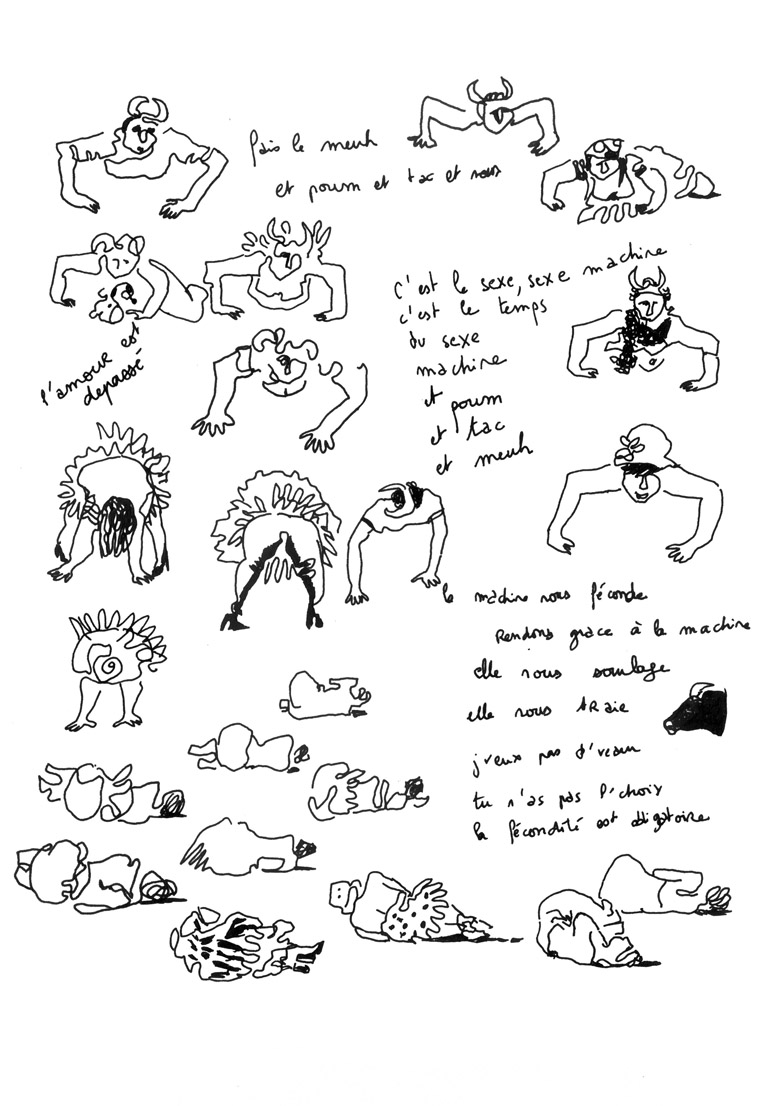 fais le meuh
et poum et tac et
c'est le sexe, sexe machine
c'est le temps
du sexe
machine
et poum
et tac
et meuh
l'amour est
depassé
la machine nous féconde
Rendons grace à la machine
elle nous soulage
elle nous tRaie
j'veux pas d'veau
tu n'as pas l'choix
la fécondité est obligatoire